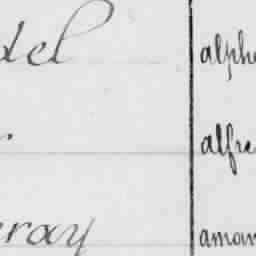 del alph
alfre
ray aman